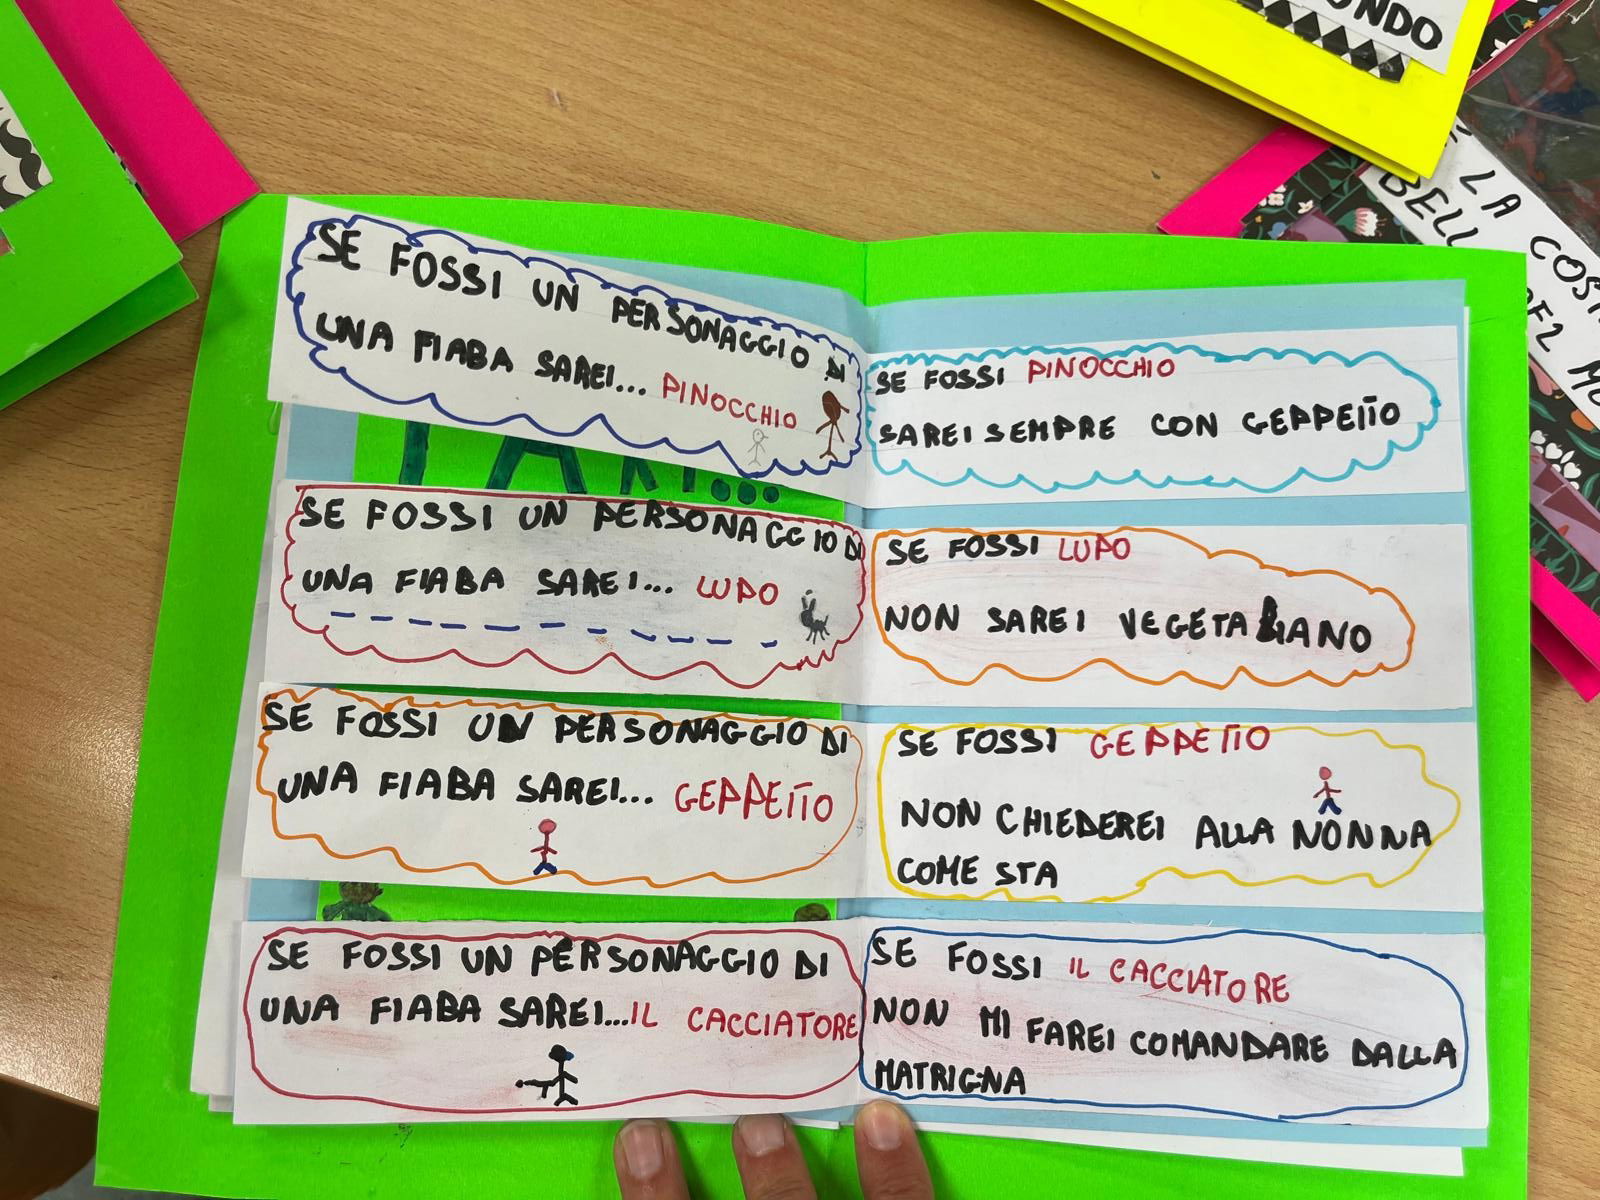 SE FOSSI UN PERSONAGGIO DI
UNA FIABA SAREI... PINOCCHIO
SE FOSSI PINOCCHIO
SAREI SEMPRE CON GEPPETTO
SE FOSSI UN PERSONAGGIO DI
UNA FIABA SAREI... LUPO
SE FOSSI LUPO
NON SAREI VEGETARIANO
SE FOSSI UN PERSONAGGIO DI
UNA FIABA SAREI... GEPPETTO
SE FOSSI GEPPETTO
NON CHIEDEREI ALLA NONNA
COME STA
SE FOSSI UN PERSONAGGIO DI
UNA FIABA SAREI...IL CACCIATORE
SE FOSSI IL CACCIATORE
NON MI FAREI COMANDARE DALLA
MATRIGNA
LA COS
BELL